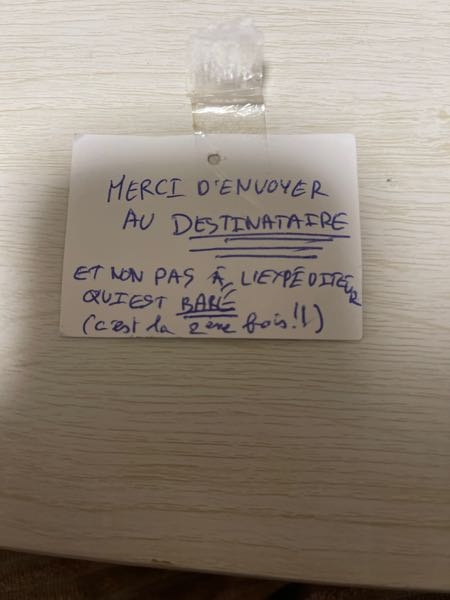 MERCI D'ENVOYER
AU DESTINATAIRE
ET NON PAS À L'EXPÉDITEUR
QUI EST BARÉ
(c'est la 2ème fois!!)